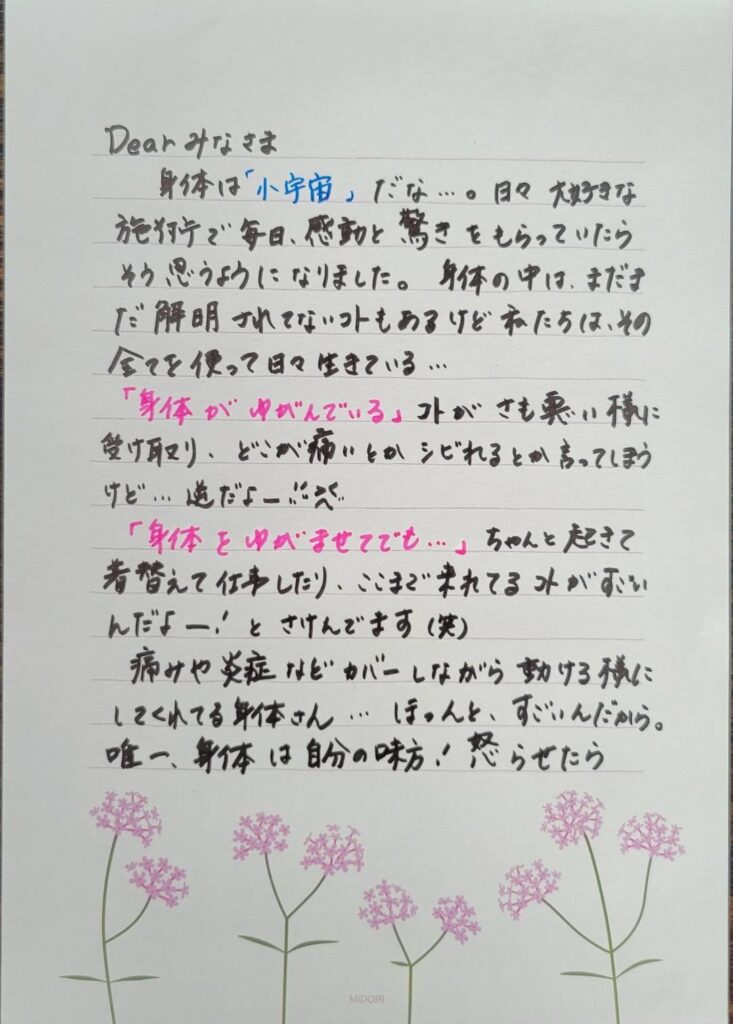 Dear みなさま
身体は「小宇宙」だな…。日々 大好きな
施術で毎日、感動と驚きをもらっていたら
そう思うようになりました。身体の中は、まだま
だ解明されてないコトもあるけど私たちは、その
全てを使って日々生きている…
「身体がゆがんでいる」コトがさも悪い様に
受け取り、どこが痛いとかシビれるとか言ってしまう
けど…逆だよー
「身体をゆがませてでも…」ちゃんと起きて
着替えて仕事したり、ここまで来れてるコトがすごい
んだよー！とさけんでます(笑)
痛みや炎症などカバーしながら動ける様に
してくれてる身体さん…ほんと、すごいんだから。
唯一、身体は自分の味方！怒らせたら
MIDORI